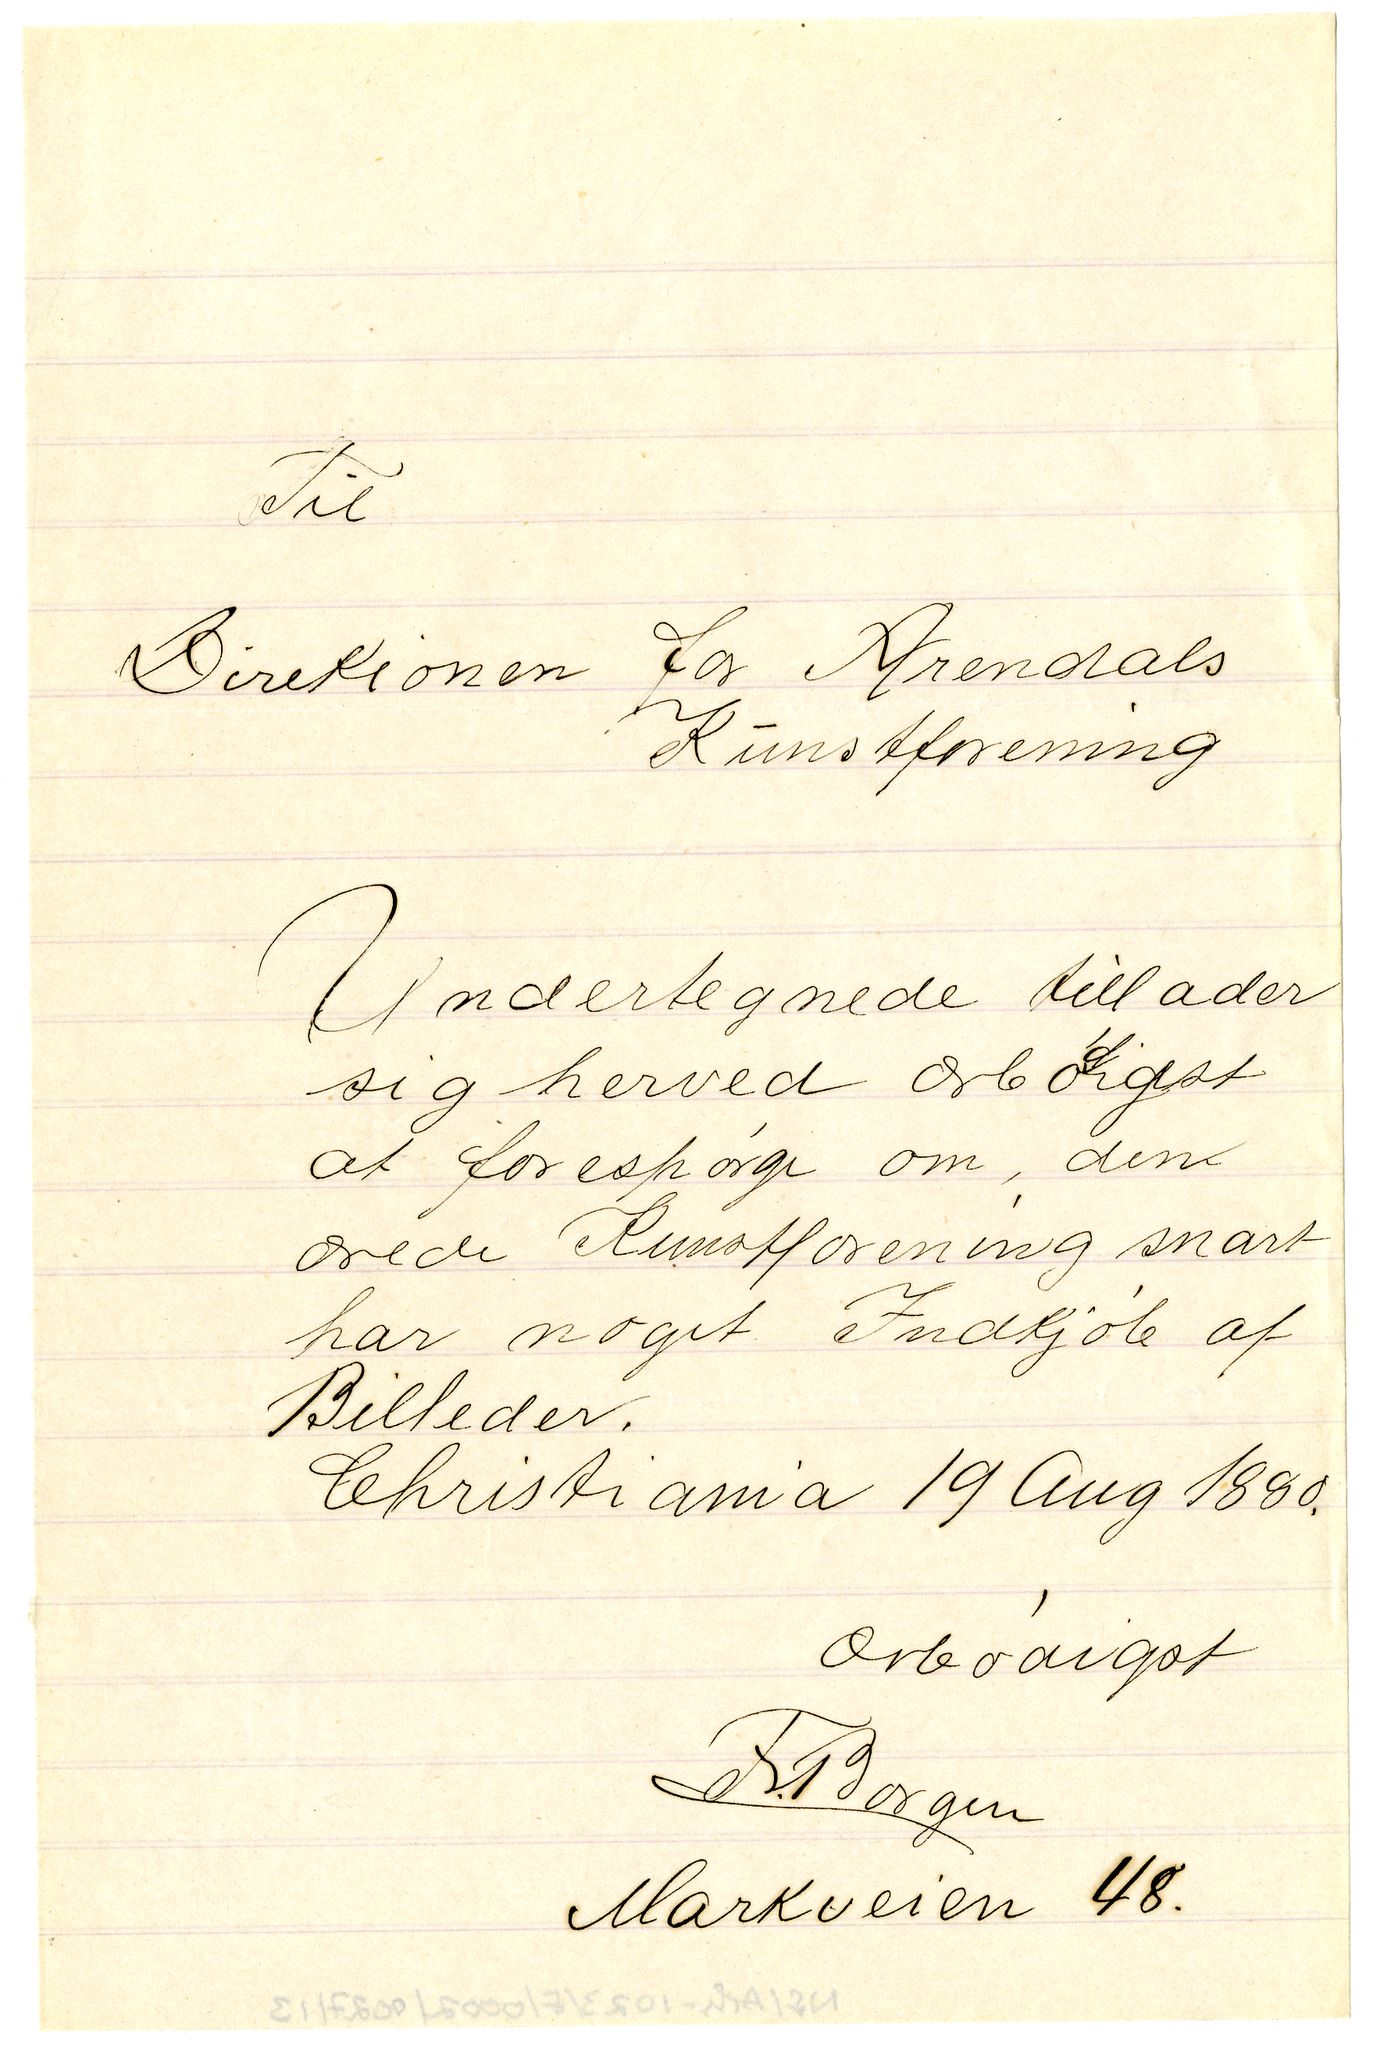 Til
Direktionen for Arendals
Kunstforening
Undertegnede tillader
sig herved ærbødigst
at forespørge om, den
ærede Kunstforening snart
har noget Indkjøb af
Billeder.
Christiania 19 Aug 1880.
Ærbødigst
Fr. Borgen
Markveien 48.